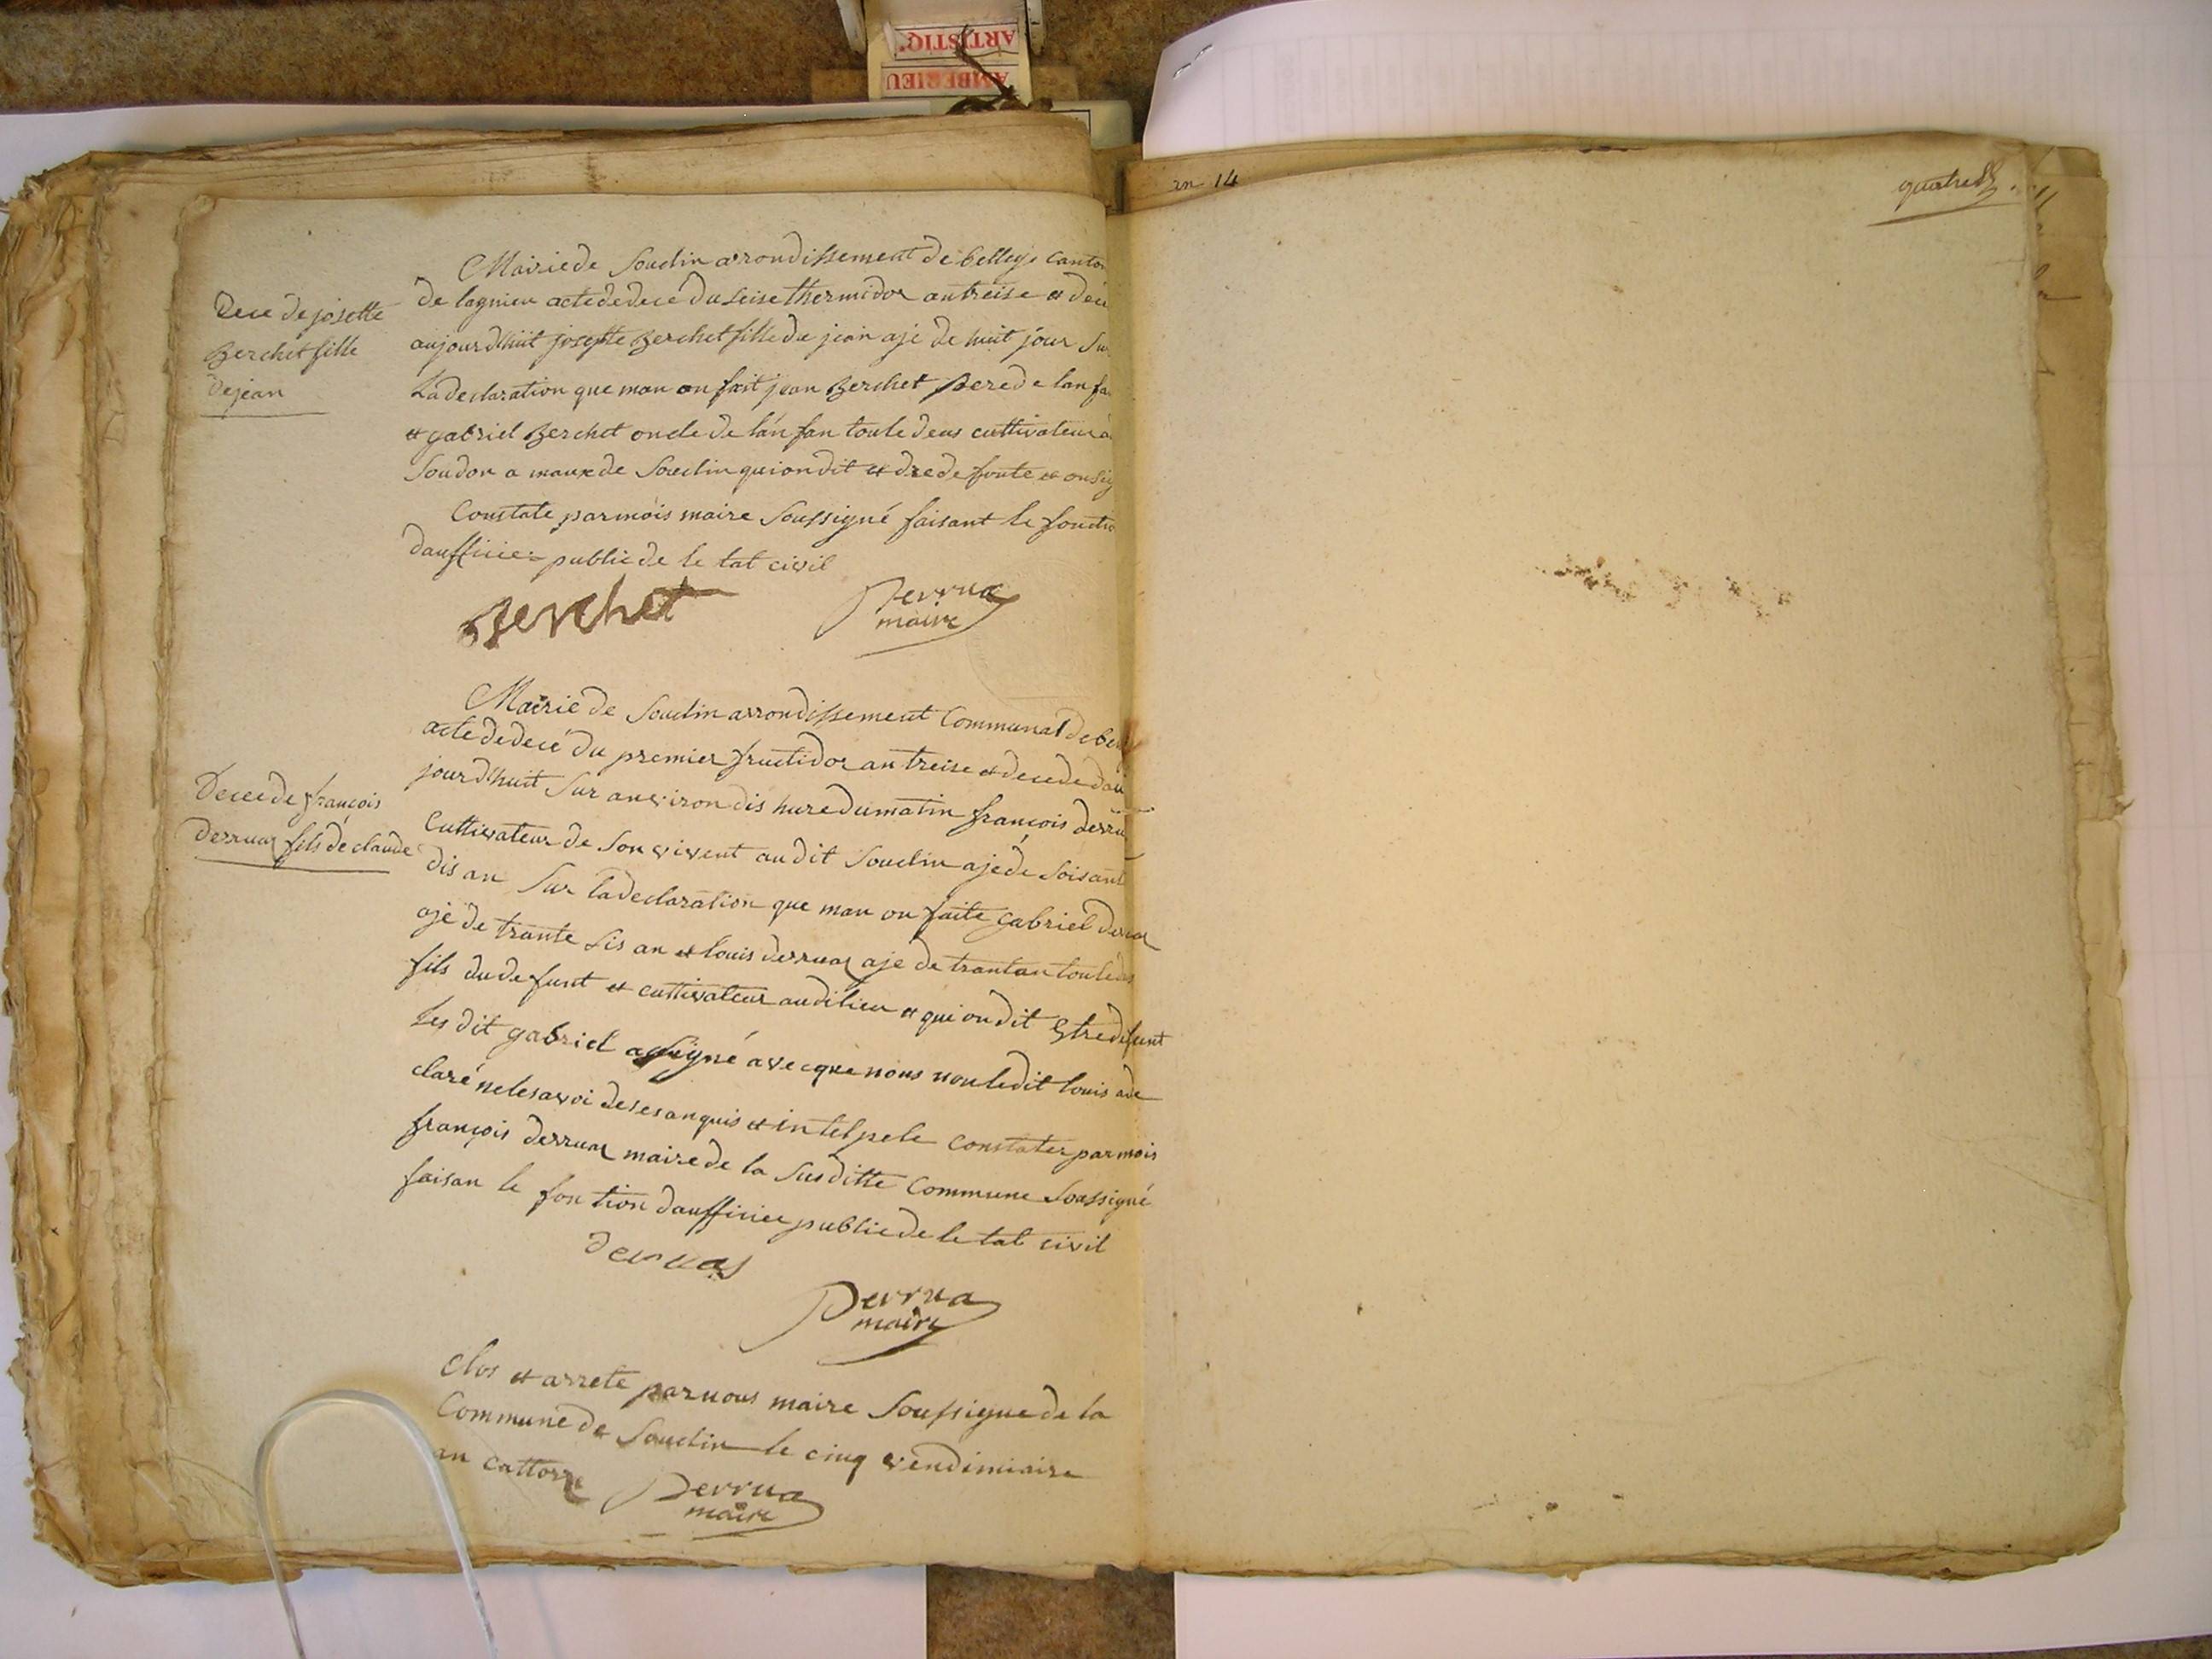 ARTISTIQ'
AMBERIEU
an 14
quatre
Dece de josette
Berchet fille
de jean
Mairie de Souclin arrondissement de belley canton
de lagnieu acte de decé du seise thermidor an treise et décé
aujourdhuit josepte Berchet fille du jean ajé de huit jour Sur
La declaration que mon on fait jean Berchet Pere de lan fan
et gabriel Berchet oncle de lán fan toule deus cultivateur à
Soudon a maux de Souclin qui on dit et dre de funte et on sig
Constate par mois maire Soussigné faisant le fonctio
daufficier public de le tat civil
Berchet
Derrua
maire
Decede françois
Derruaz fils de claude
Mairie de Souclin arrondissement Communal de bell
acte de decé du premier fructidor an treise et decede dau
jourdhuit Sur anviron dis hure du matin françois derru
Cultivateur de Son vivent au dit Souclin ajé de Soisant
dis an Sur la declaration que mon on faite gabriel derruaz
ajé de trante Sis an et louis derruaz aje de trantan toule ds
fils du defunt et cultivateur au dilieu et qui on dit Etre defunt
Les dit gabriel a signé avecque nous nou le dit louis a de
claré ne le savoi de ses anquis et intelpele Constater par mois
françois derruaz maire de la Susditte Commune Soussigné
faisan le fon tion daufficier public de le tat civil
derruas
Derrua
maire
Clos et arrete par nous maire Soussigné de la
Commune de Souclin le cinq vendimiaire
an cattorze
Derrua
maire